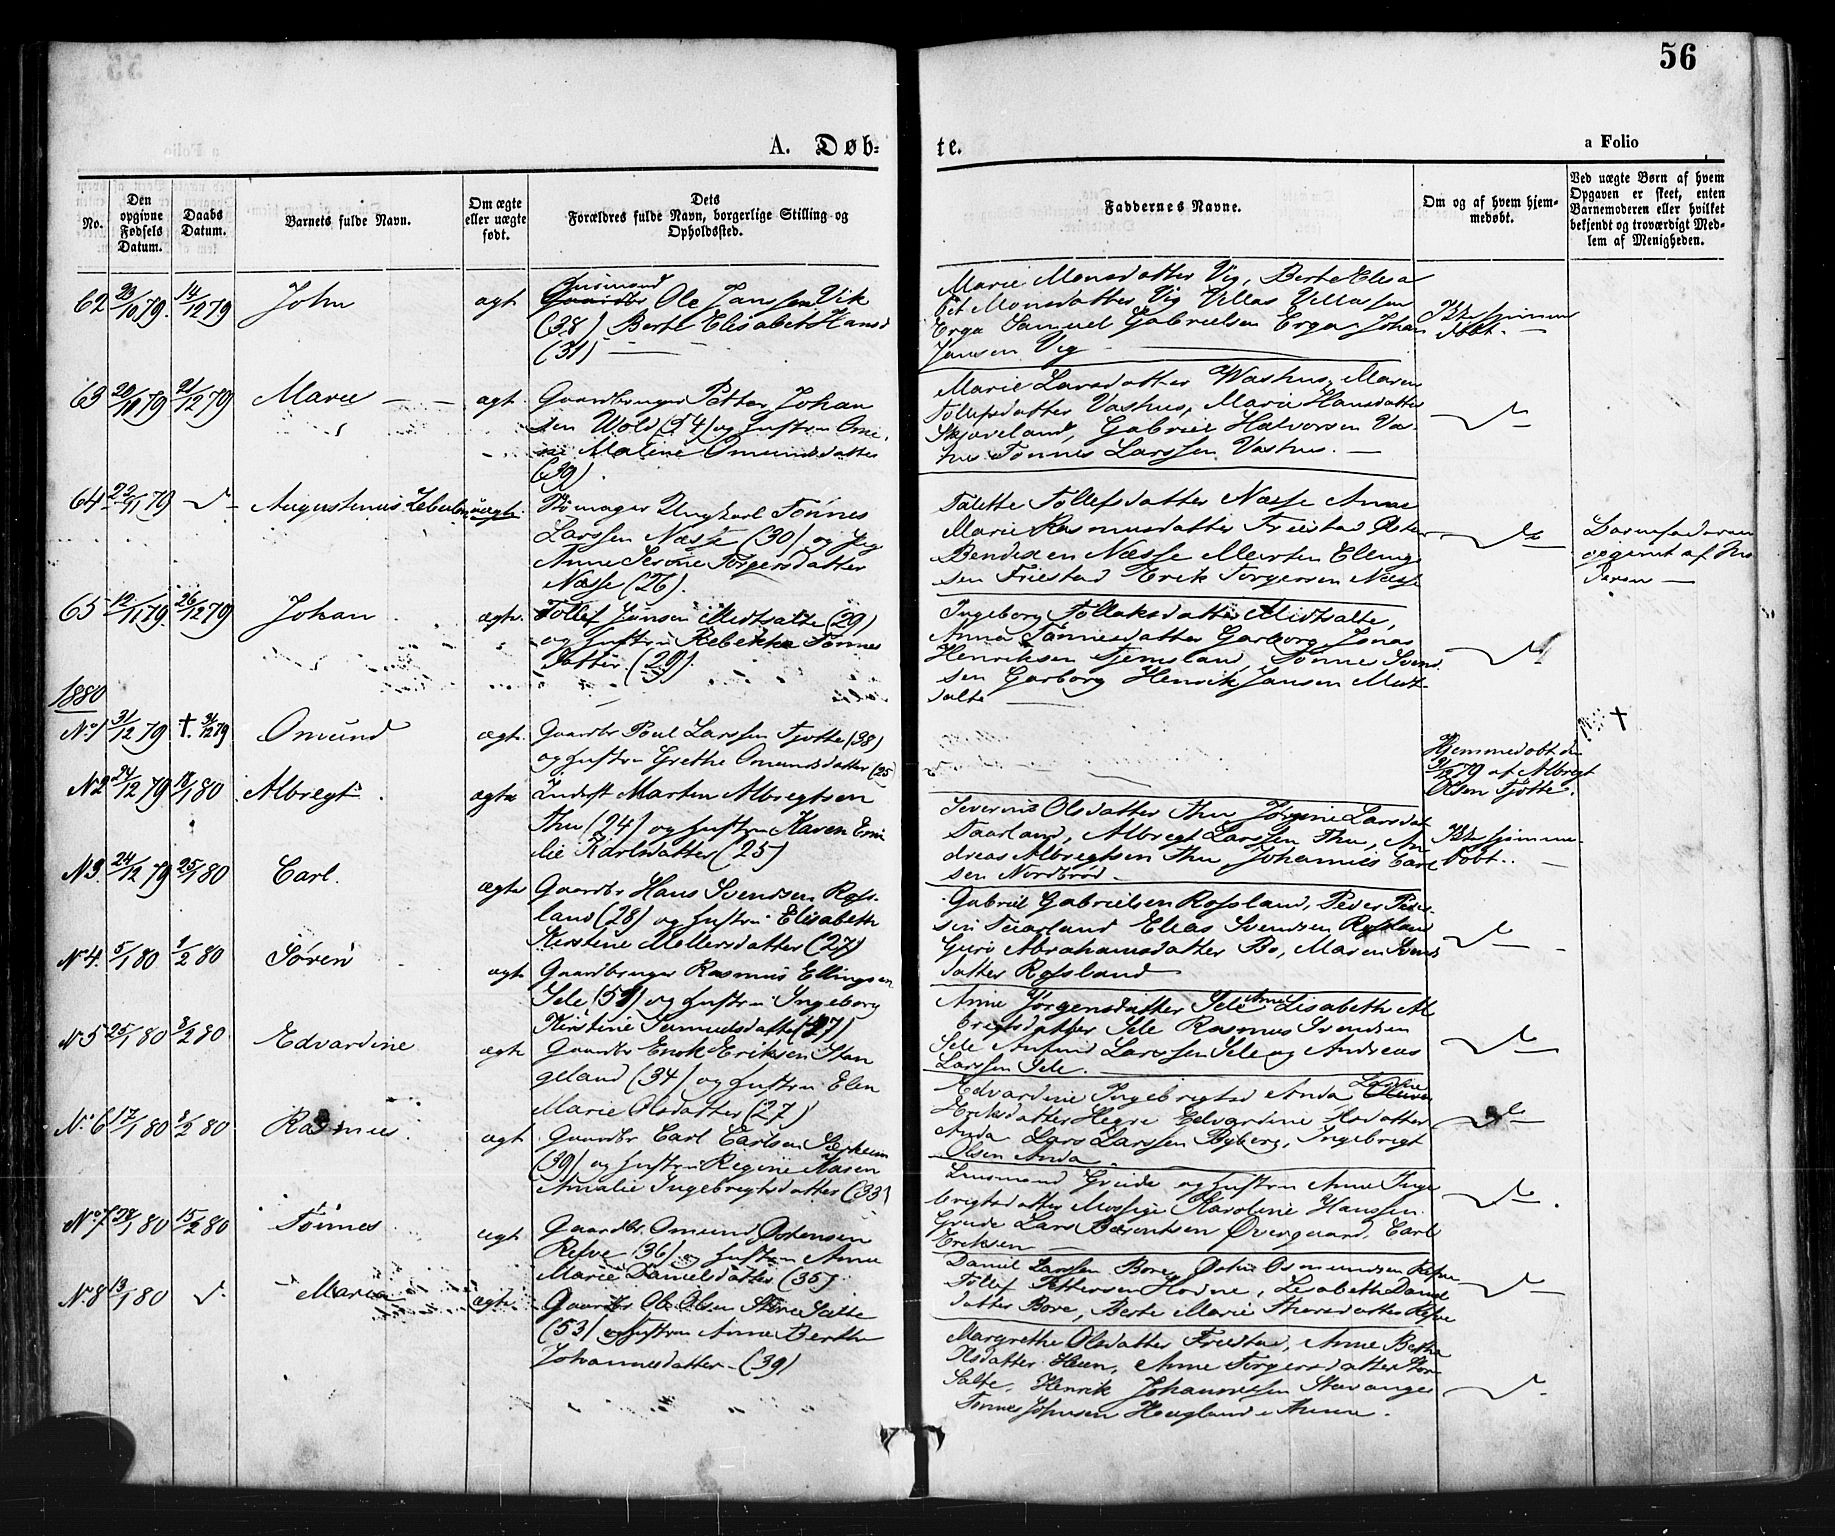 56
A. Døb-
te.
a Folio
No.
Den opgivne Fødsels Datum.
Daabs Datum.
Barnets fulde Navn.
Om ægte eller uægte født.
Dets Forældres fulde Navn, borgerlige Stilling og Opholdssted.
Faddernes Navne.
Om og af hvem hjem-
medøbt.
Ved uægte Børn af hvem
Opgaven er skeet, enten
Barnemoderen eller hvilket
bekjendt og troværdigt Med-
lem af Menigheden.
62 23/10 79. 14/12 79 John ægte
Gaardbr Ole Janssen Vik
(38) Berte Elisabet Hansd
(31)
Marie Monsdatter Vig, Berte Elisa
bet Monsdatter Vig Villas Villassen
Erga Samuel Gabrielsen Erga Johan
Jansen Vig
Ikke hjemme
døbt.
63 20/11 79 21/12 79 Marie ægt.
Gaardbruger Petter Johan
sen Wold (54) og hustru Omi
ne Maline Omundsdatter
(39).
Marie Larsdatter Washus, Maren
Tollefsdatter Vashus, Marie Hansdatter
Skjæveland, Gabriel Halvorsen Vas-
hus Tønnes Larssen Vashus.
64 23/11 79 Augustinus Zebulon uægte
Ungkarl Tønnes
Larssen Næsse (30) og Pig
Anne Serine Torgersdatter
Næsse (26).
Talette Tollefsdatter Næsse Anne
Marie Rasmusdatter Friestad
Bendixen Næsse Morten Elling
sen Friestad Erik Torgersen Næsse
Barnefaderen
opgivet af Mo
deren
65 12/11 79. 26/12 79 Johan ægte
Tollef Jansen Midtsalte (29)
og hustru Rebekka Tønnes
datter (29).
Ingeborg Tollaksdatter Midtsalte,
Anna Tønnesdatter Garborg, Jonas
Henriksen Tjemsland, Tønnes Svend
sen Garborg Henrik Jansen Midt-
salte
1880
No 1 31/12 79 †. 31/12 79 Omund ægte
Gaardbr Poul Larssen Tjøtte (38)
og hustru Grethe Omundsdatter (25
Hjemmedøbt den
31/12 79 af Albregt
Olsen Tjøtte.
†
No 2 24/12 79 18/1 80 Albregt ægte
Inderst Marten Albregtsen
Thu (24) og hustru Karen Emi
lie Karlsdatter (25)
Severine Olsdatter Thu Jørgine Larsdat
Taarland, Albregt Larssen Thu, An
dreas Albregtsen Thu, Johannes Carl
sen Nordbrød.
Ikke hjemme-
døbt.
No 3. 24/12 79 25/1 80 Carl. ægte
Gaardbr Hans Svendsen Ross-
land (28) og hustru Elisabeth
Kirstine Mellersdatter (27)
Gabriel Gabrielsen Rossland, Peder Peder-
sen Tuarland Elias Svendsen Rossland
Guri Abrahamsdatter Bø, Maren Svends
datter Rossland
No 4. 5/1 80 1/2 80 Søren ægt
Gaardbruger Rasmus Ellingsen
Sele (51) og hustru Ingeborg
Kirstine Samuelsdatter (27)
Anne Jørgensdatter Sele Anne Lisabeth Al
bregtsdatter Sele Rasmus Svendsen
Sele Larssen Sele og Andreas
Larssen Sele.
No 5 25/1 80 8/2 80 Edvardine ægte
Gaardbr Enok Eriksen Stan
geland (34) og hustru Elen
Marie Olsdatter (27)
Edvardine Ingebrigtsd Anda
Eriksdatter Hegre Edvardine
Anda Lars Larssen Byberg, Ingebrigt
Olsen Anda
No 6 17/1 80 8/2 80 Rasmus. ægt
Gaardbr Carl Carlsen Særheim
(39) og hustru Regine Karen
Amalie Ingebregtsdatter (33)
Lensmand Grude og hustru Anne Inge
brigtsdatter Mossige Karoline Hanssen
Grude Lars Berentsen Øvregaard, Carl
Eriksen
No 7 28/1 80 15/2 80 Tønnes ægt
Gaardbr. Omund Østensen
Refve (36) og hustru Anne
Marie Danielsdatter (35)
Daniel Larssen Bore, Osmundsen Refve
Tollef Pettersen Hodne, Lisabeth Daniel
datter Bore, Berte Marie Thoresdatter Refve
No 8 13/1 80 Maria ægte
Gaardbr Ole Olsen Salte
(53) og hustru Anne Berthe
Johannesdatter (39)
Margrethe Olsdatter Friestad, Anne Bertha
Olsdatter Hæen, Anne Torgersdatter
Salte, Henrik Johannesen Stavanger
Tønnes Johnsen Haugland